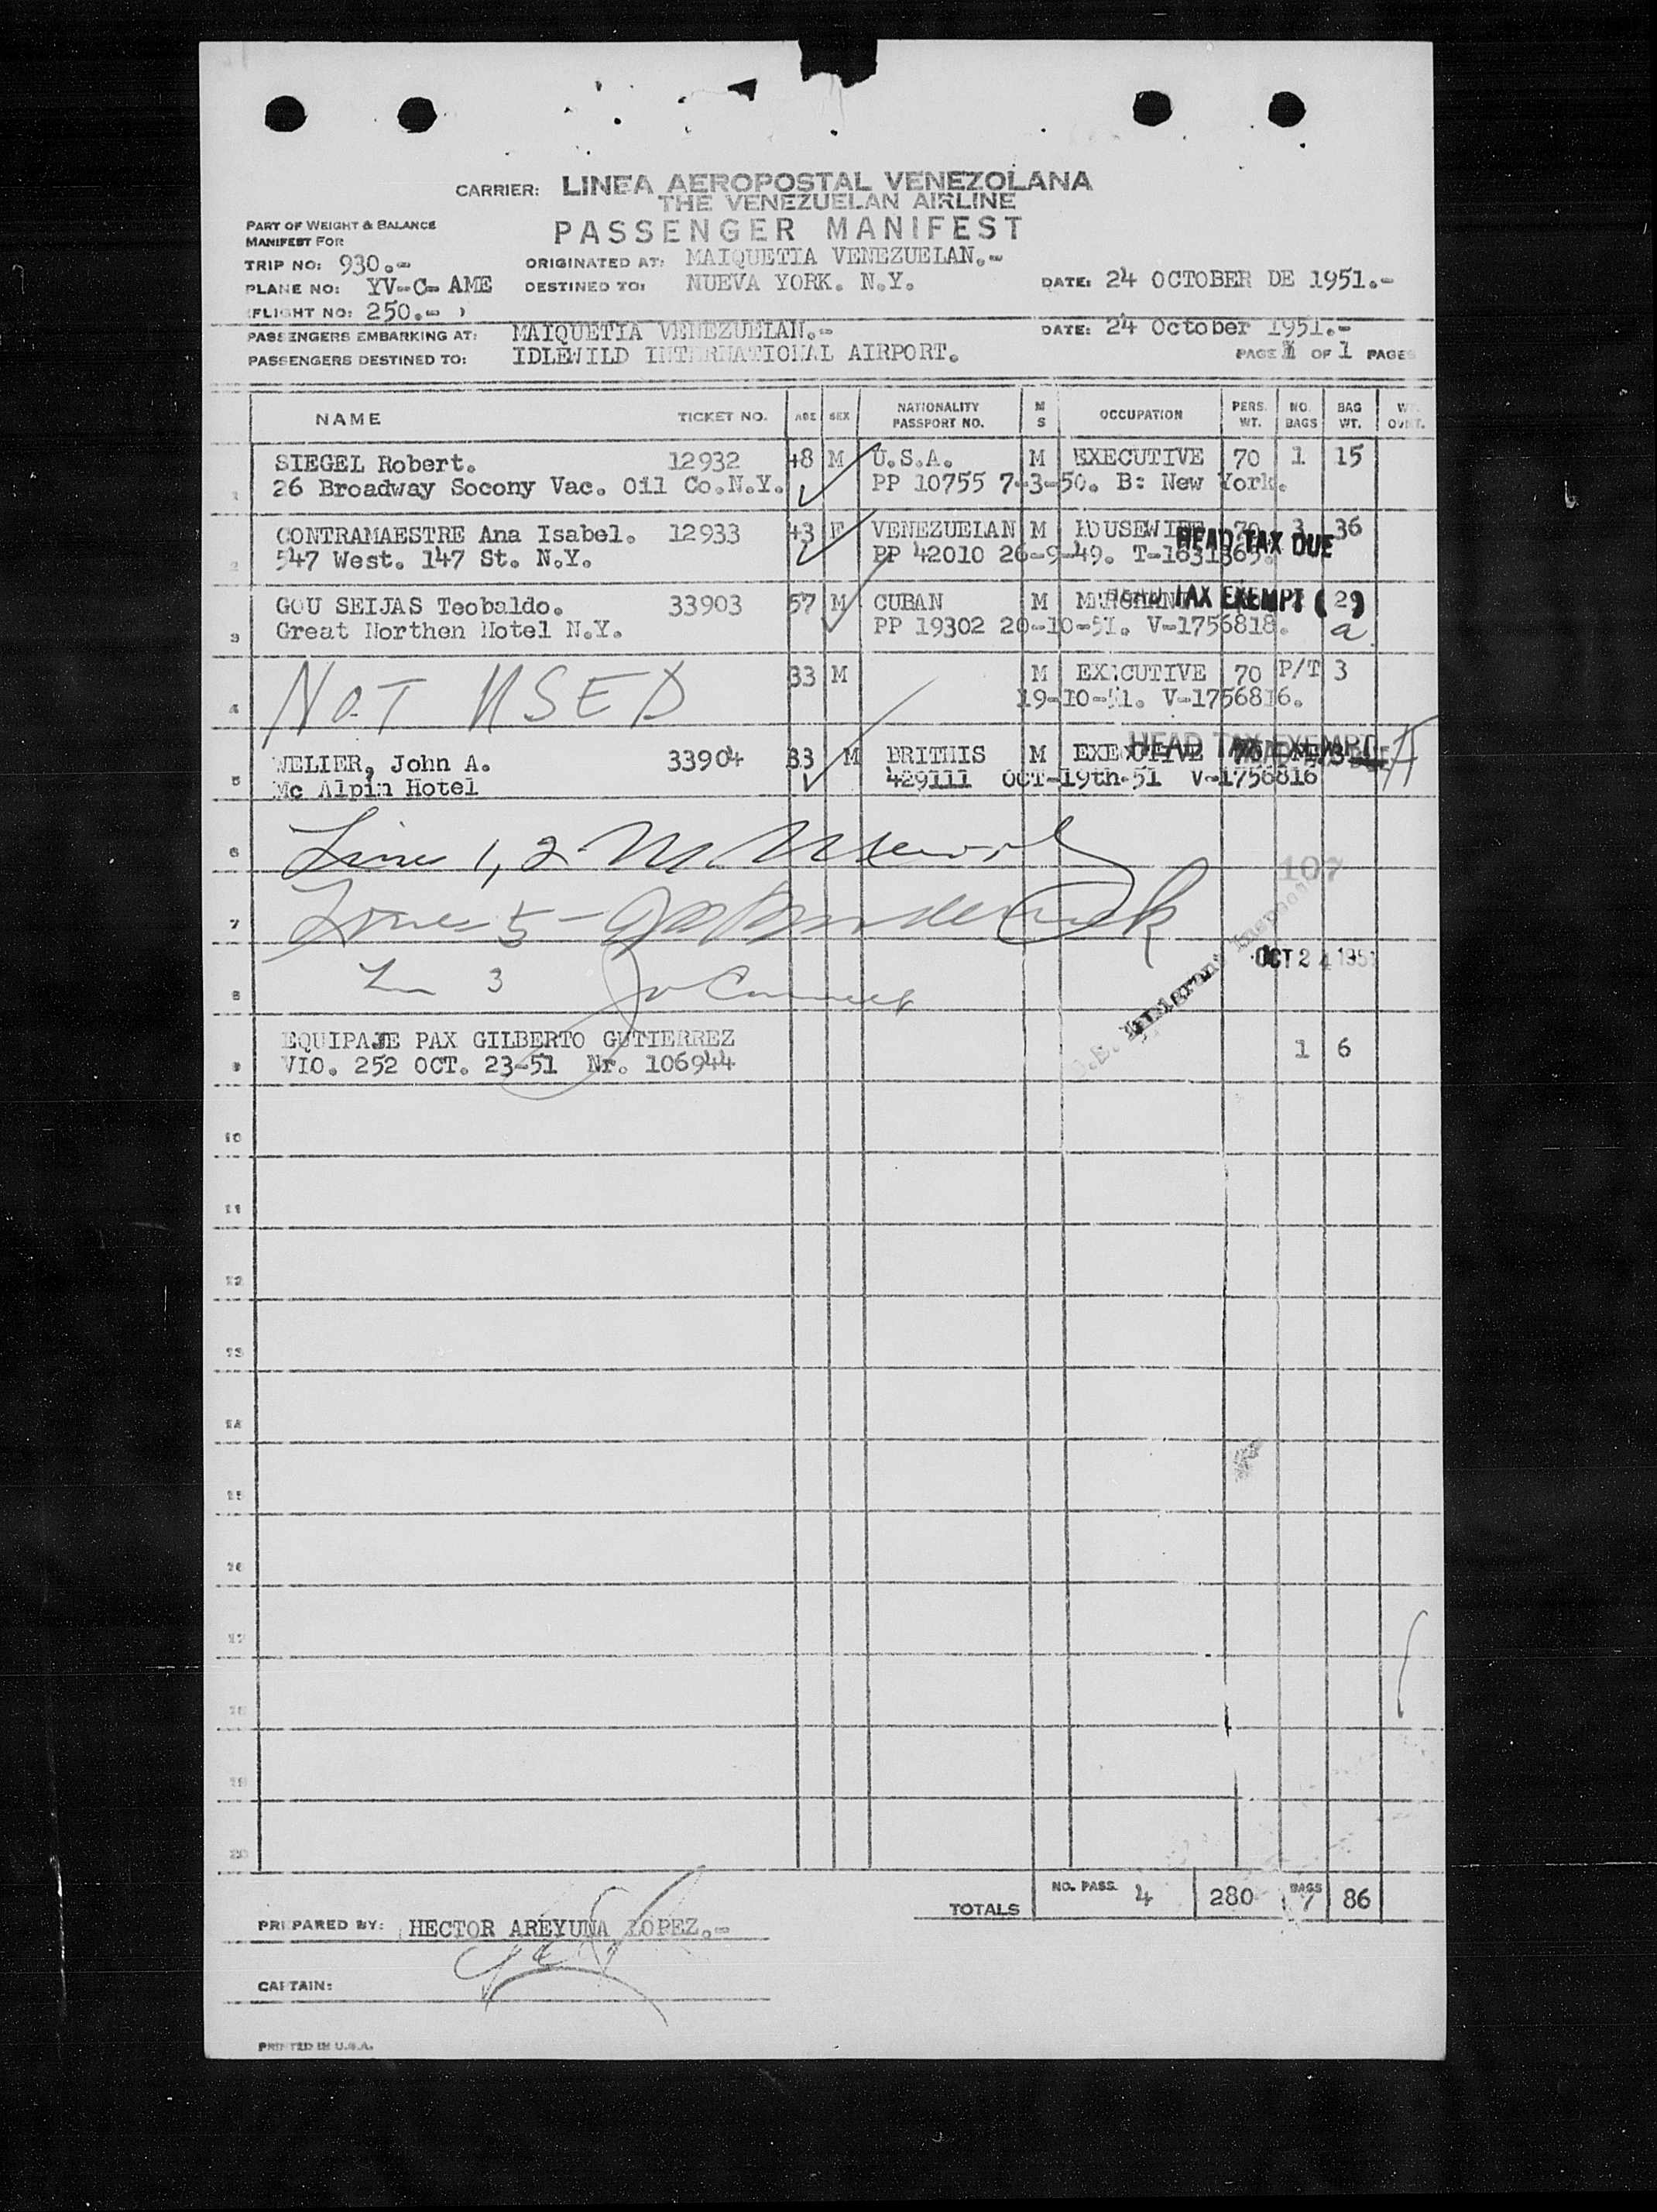 CARRIER: LINEA AEROPOSTAL VENEZOLANA
THE VENEZUELAN AIRLINE
PART OF WEIGHT & BALANCE
MANIFEST FOR
PASSENGER MANIFEST
TRIP NO: 930.- ORIGINATED AT: MAIQUETIA VENEZUELAN.-
PLANE NO: YV-C- AME DESTINED TO: NUEVA YORK. N.Y. DATE: 24 OCTOBER DE 1951.-
(FLIGHT NO: 250.- )
PASSENGERS EMBARKING AT: MAIQUETIA VENEZUELAN.- DATE: 24 October 1951.-
PASSENGERS DESTINED TO: IDLEWILD INTERNATIONAL AIRPORT. PAGE 1 OF 1 PAGES
NAME TICKET NO. AGE SEX NATIONALITY PASSPORT NO. M S OCCUPATION PERS. WT. NO. BAGS BAG WT. WT. OVWT.
1 SIEGEL Robert. 12932 48 M U.S.A. M EXECUTIVE 70 1 15
26 Broadway Socony Vac. Oil Co.N.Y. PP 10755 7-3-50. B: New York.
2 CONTRAMAESTRE Ana Isabel. 12933 43 F VENEZUELAN M HOUSEWIFE 70 3 36
HEAD TAX DUE
547 West. 147 St. N.Y. PP 42010 26-9-49. T-1631369.
3 GOU SEIJAS Teobaldo. 33903 57 M CUBAN M MERCHANT HEAD TAX EXEMPT ( 29 )
Great Northen Hotel N.Y. PP 19302 20-10-51. V-1756818. a
4 NOT USED 33 M M EXECUTIVE 70 P/T 3
19-10-51. V-1756816.
HEAD TAX EXEMPT
5 WELIER, John A. 33904 33 M BRITHIS M EXECUTIVE
Mc Alpin Hotel 429111 OCT-19th-51 V-1756816
6 Lines 1, 2
107
7 Lines 5 -
OCT 24 1951
8 3
U.S. Immigrant Inspector
EQUIPAJE PAX GILBERTO GUTIERREZ 1 6
9 VIO. 252 OCT. 23-51 Nr. 106944
10
11
12
13
14
15
16
17
18
19
20
TOTALS NO. PASS. 4 280 BAGS 7 86
PREPARED BY: HECTOR AREYUNA LOPEZ.-
CAPTAIN:
PRINTED IN U.S.A.